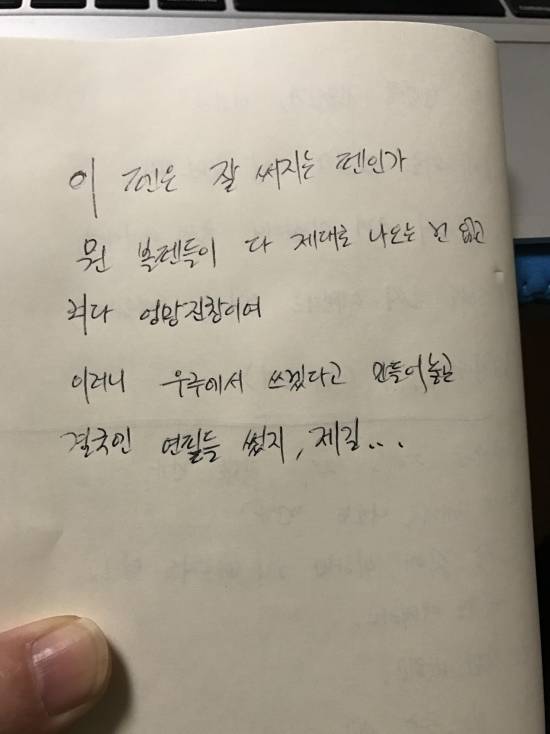 이 펜은 잘 써지는 펜인가
뭔 볼펜들이 다 제대로 나오는 건 없고
죄다 엉망진창이여
이러니 우주에서 쓰겠다고 만들어놓곤
결국인 연필들 썼지, 제길...